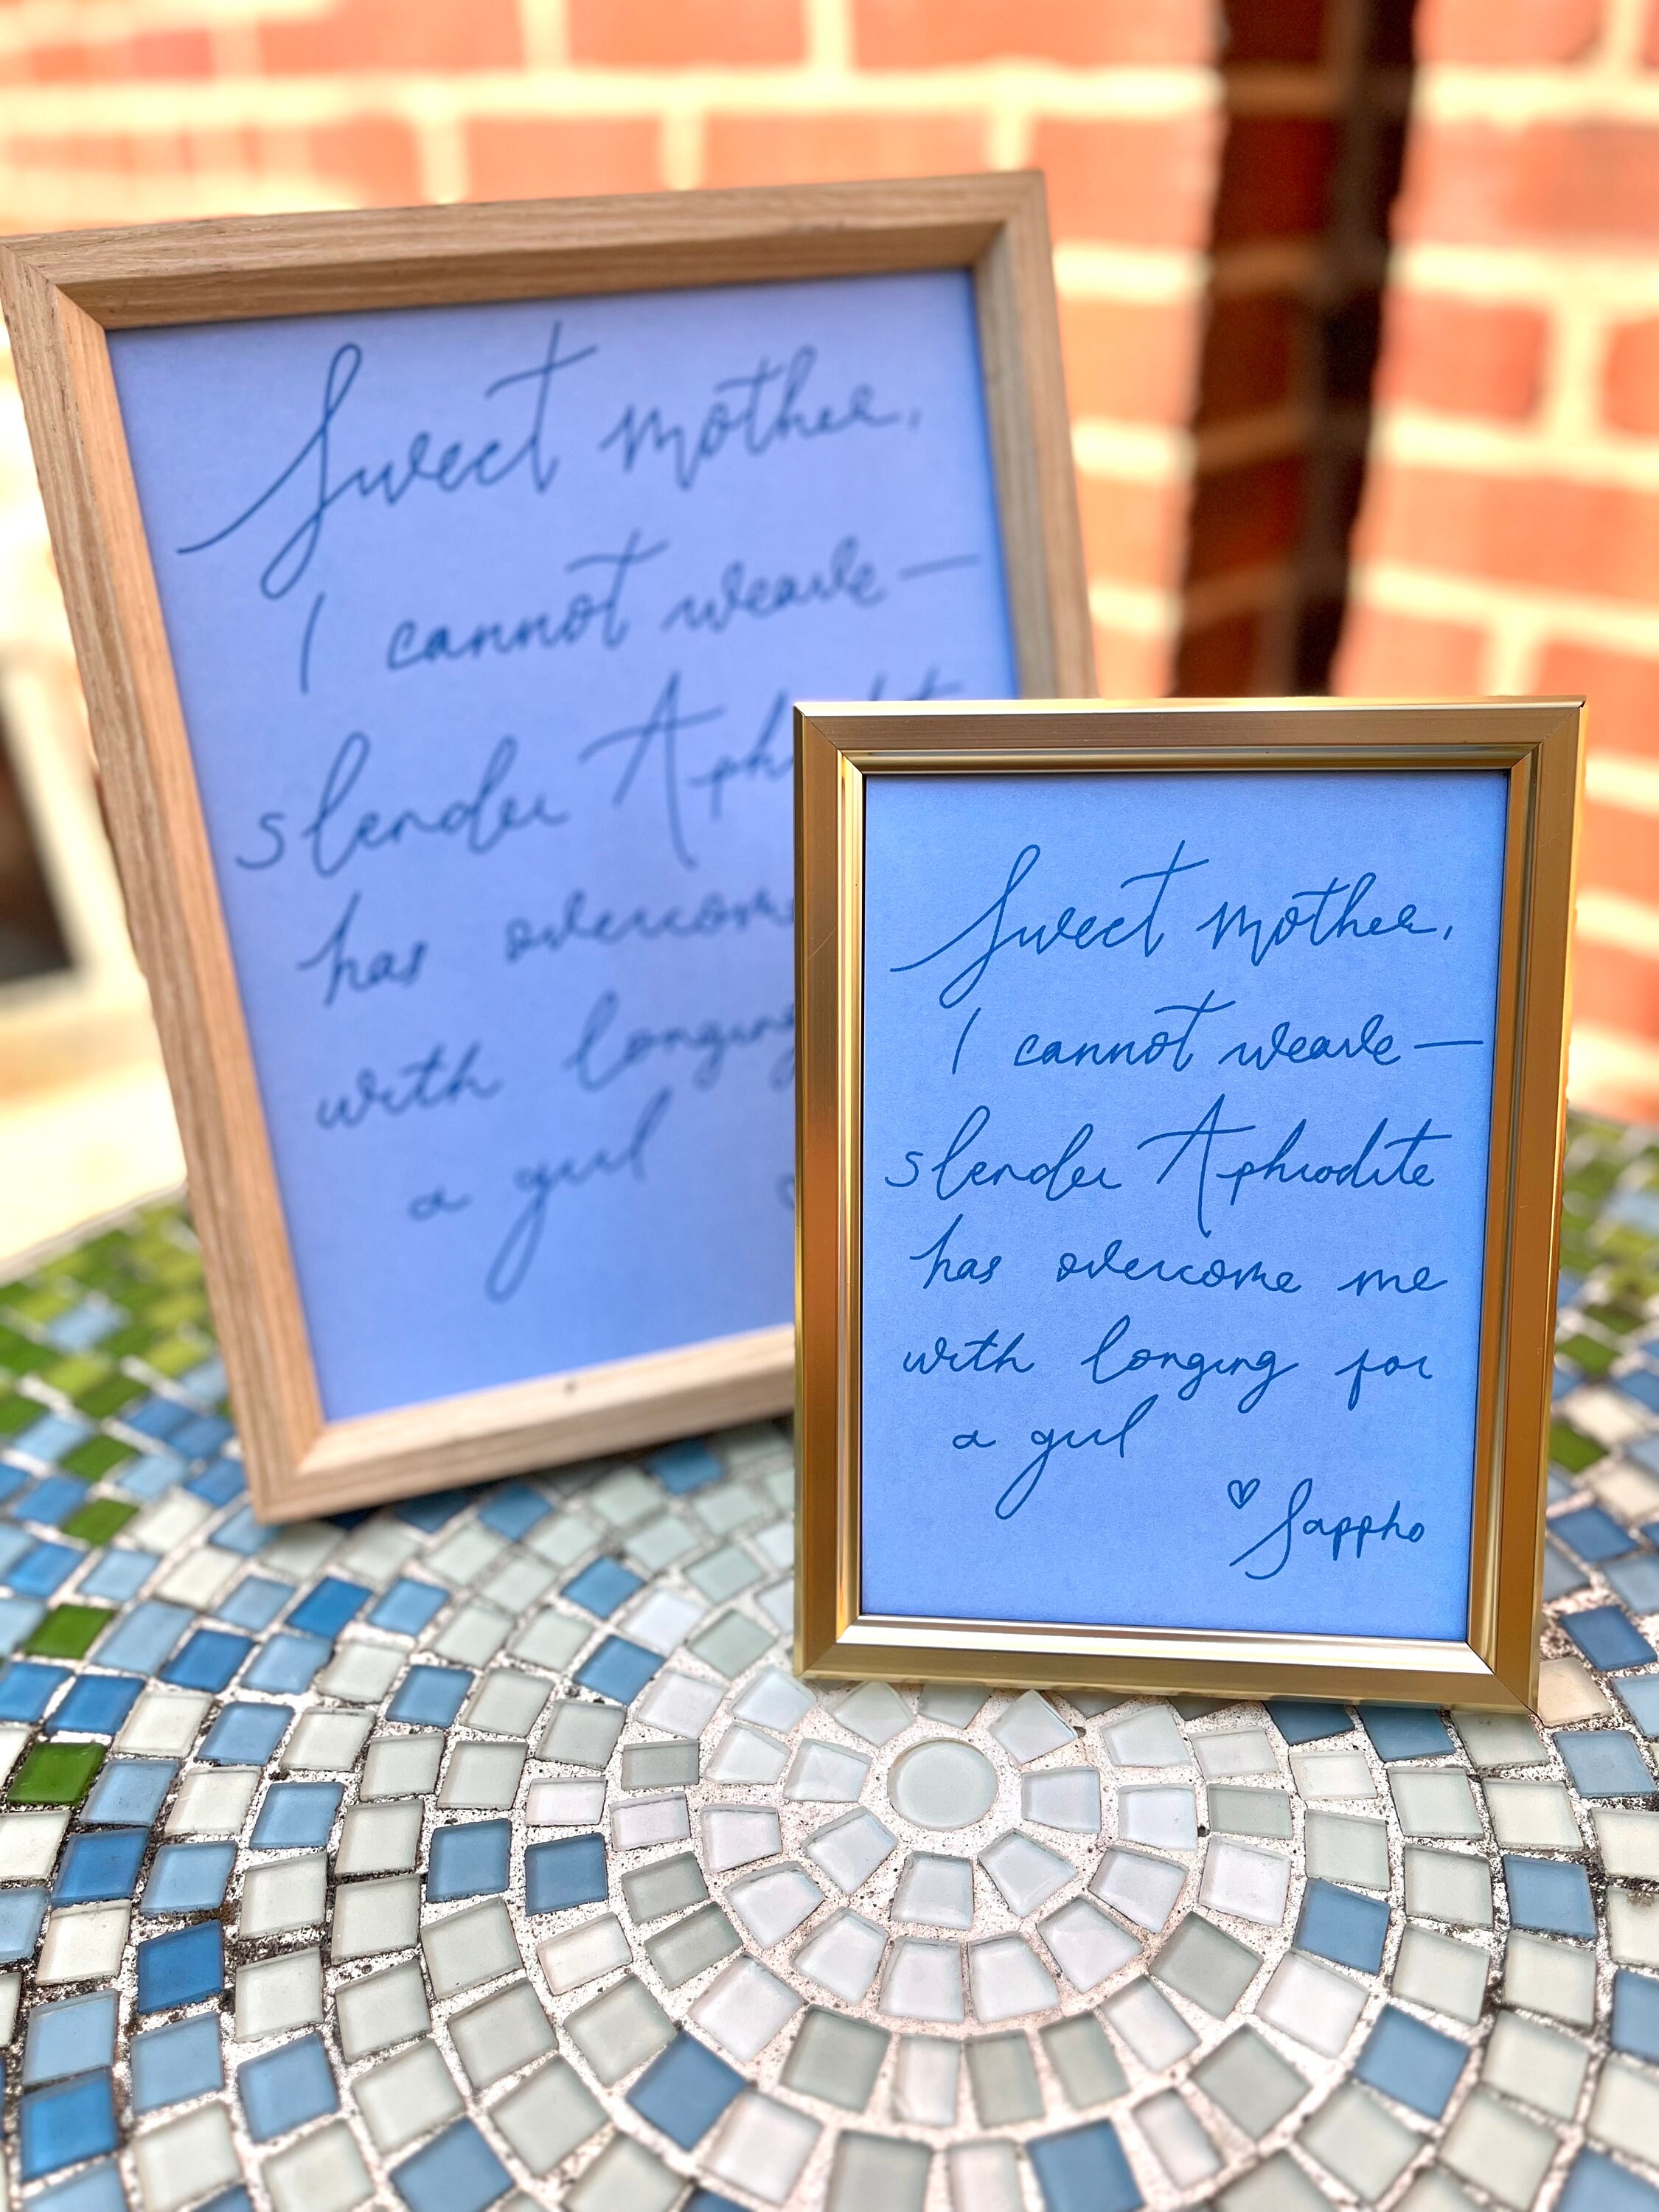 Sweet mother,
I cannot weave —
slender Aphrodite
has overcome
with longing
a girl
Sweet mother,
I cannot weave —
slender Aphrodite
has overcome me
with longing for
a girl
♡ Sappho